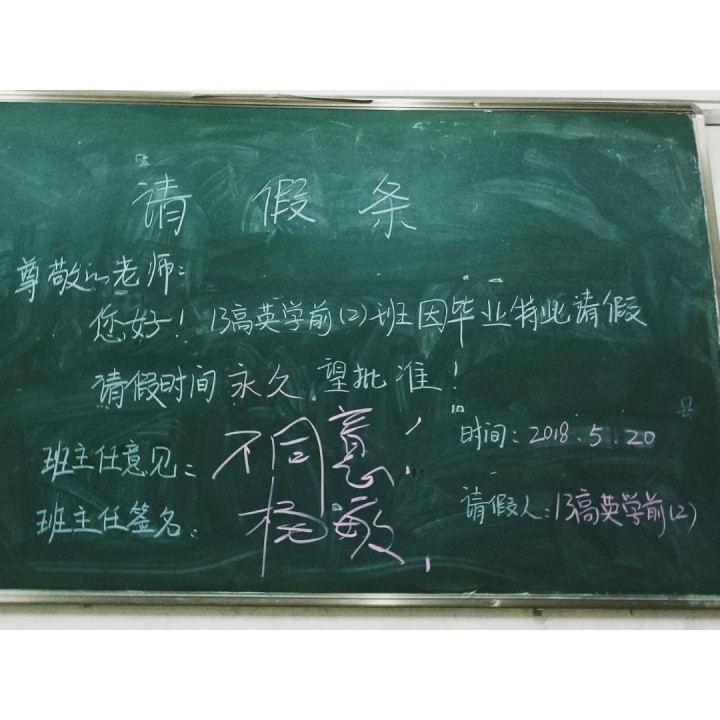 请假条
尊敬的老师:
您好! 13高英学前(2)班因毕业特此请假
请假时间永久,望批准!
班主任意见: 不同意!
时间: 2018.5.20
班主任签名: 杨敏
请假人: 13高英学前(2)